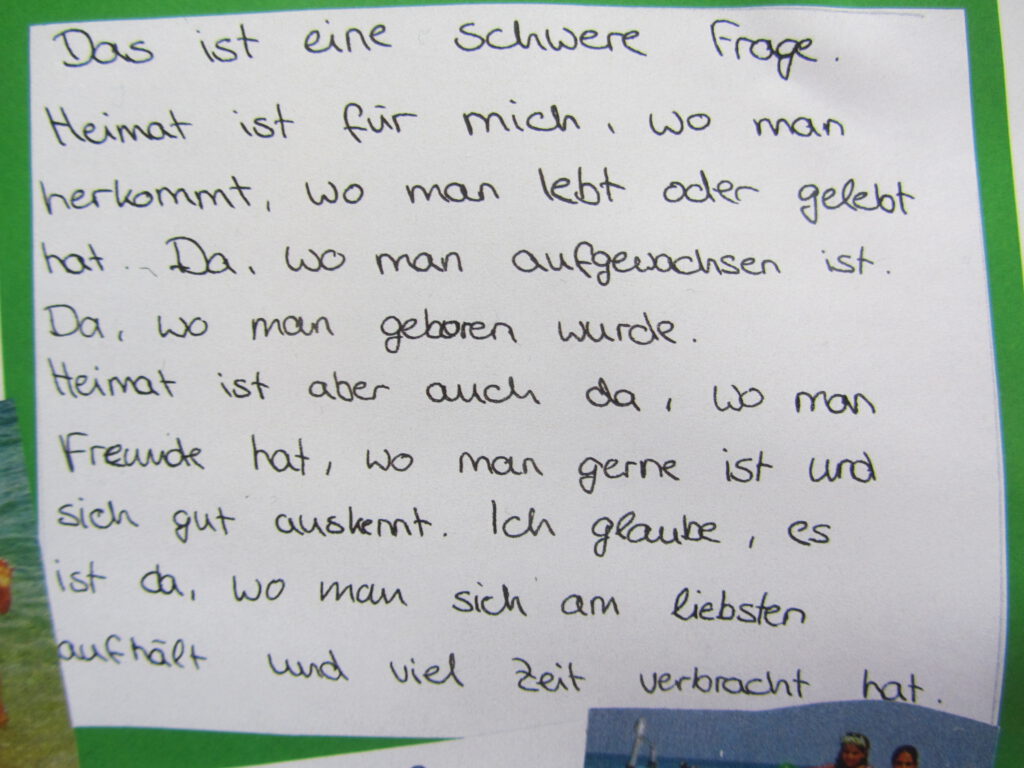 Das ist eine schwere Frage.
Heimat ist für mich, wo man
herkommt, wo man lebt oder gelebt
hat. Da, wo man aufgewachsen ist.
Da, wo man geboren wurde.
Heimat ist aber auch da, wo man
Freunde hat, wo man gerne ist und
sich gut auskennt. Ich glaube, es
ist da, wo man sich am liebsten
aufhält und viel Zeit verbracht hat.